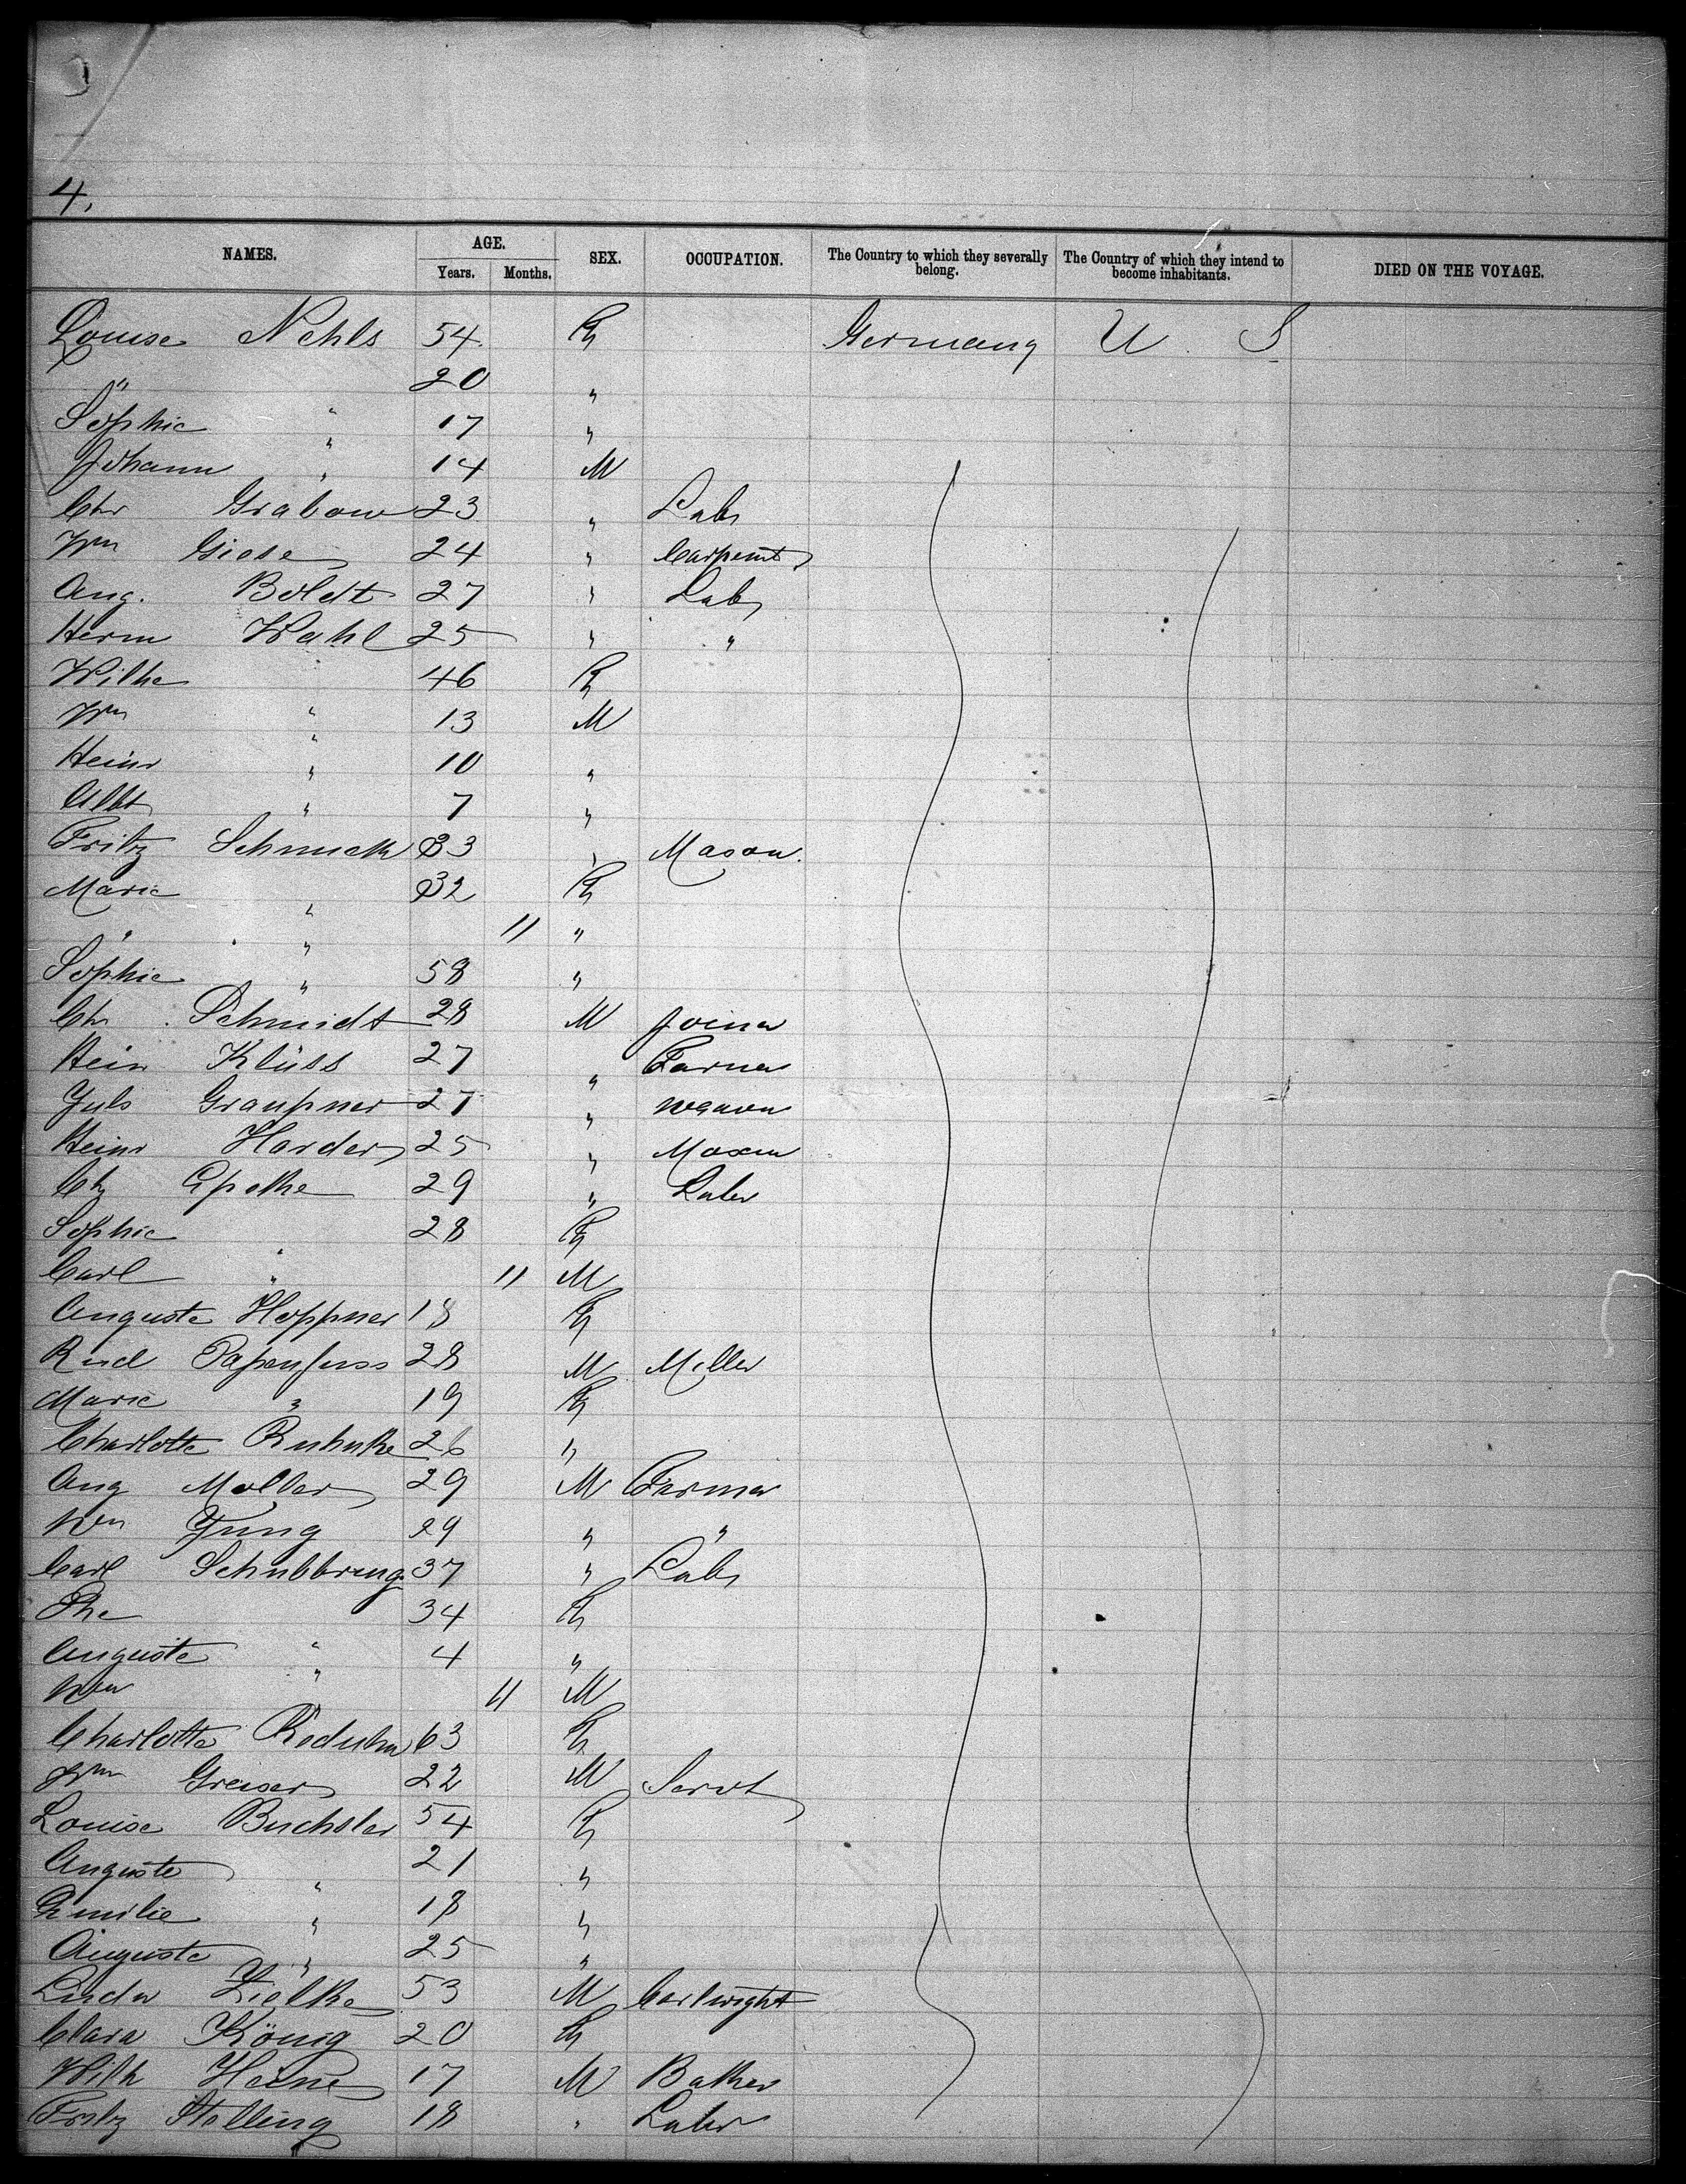 4.
NAMES. AGE. Years. Months. SEX. OCCUPATION. The Country to which they severally belong. The Country of which they intend to become inhabitants. DIED ON THE VOYAGE.
Louise Nehls 54. F Germany U. S
" " 20 "
Sophie " 17 "
Johann " 14 M
Chr Grabow 23 " Labr
Wm Giese 24 " Carpent
Aug. Boldt 27 " Labr
Herm Wahl 25 " "
Wilhe " 46 F
Wm " 13 M
Heinr " 10 "
Albt " 7 "
Fritz Schmuck 33 " Mason.
Marie " 32 F
" " 11 "
Sophie " 58 "
Chr Schmidt 28 M Joiner
Heinr Klüss 27 " Farmer
Juls Graupner 27 " weaver
Heinr Harder 25 " Mason
Chr Epothe 29 " Labr
Sophie " 28 F
Carl " 11 M
Auguste Hoppner 18 F
Rud Papenfuss 28 M Miller
Marie " 19 F
Charlotte Ruhnke 26 "
Aug Moller 29 M Farmer
Wm Jung 29 " "
Carl Schubbring 37 " Labr
34 F
Auguste " 4 "
Wm " 11 M
Charlotte Roduhn 63 F
Wm Greiser 22 M Servt
Louise Buchsler 54 F
Auguste " 21 "
Emilie " 18 "
Auguste " 25 "
Ludw Zielke 53 M Cartwright
Clara König 20 F
Wilh Heine 17 M Baker
Fritz Stelling 18 " Labr